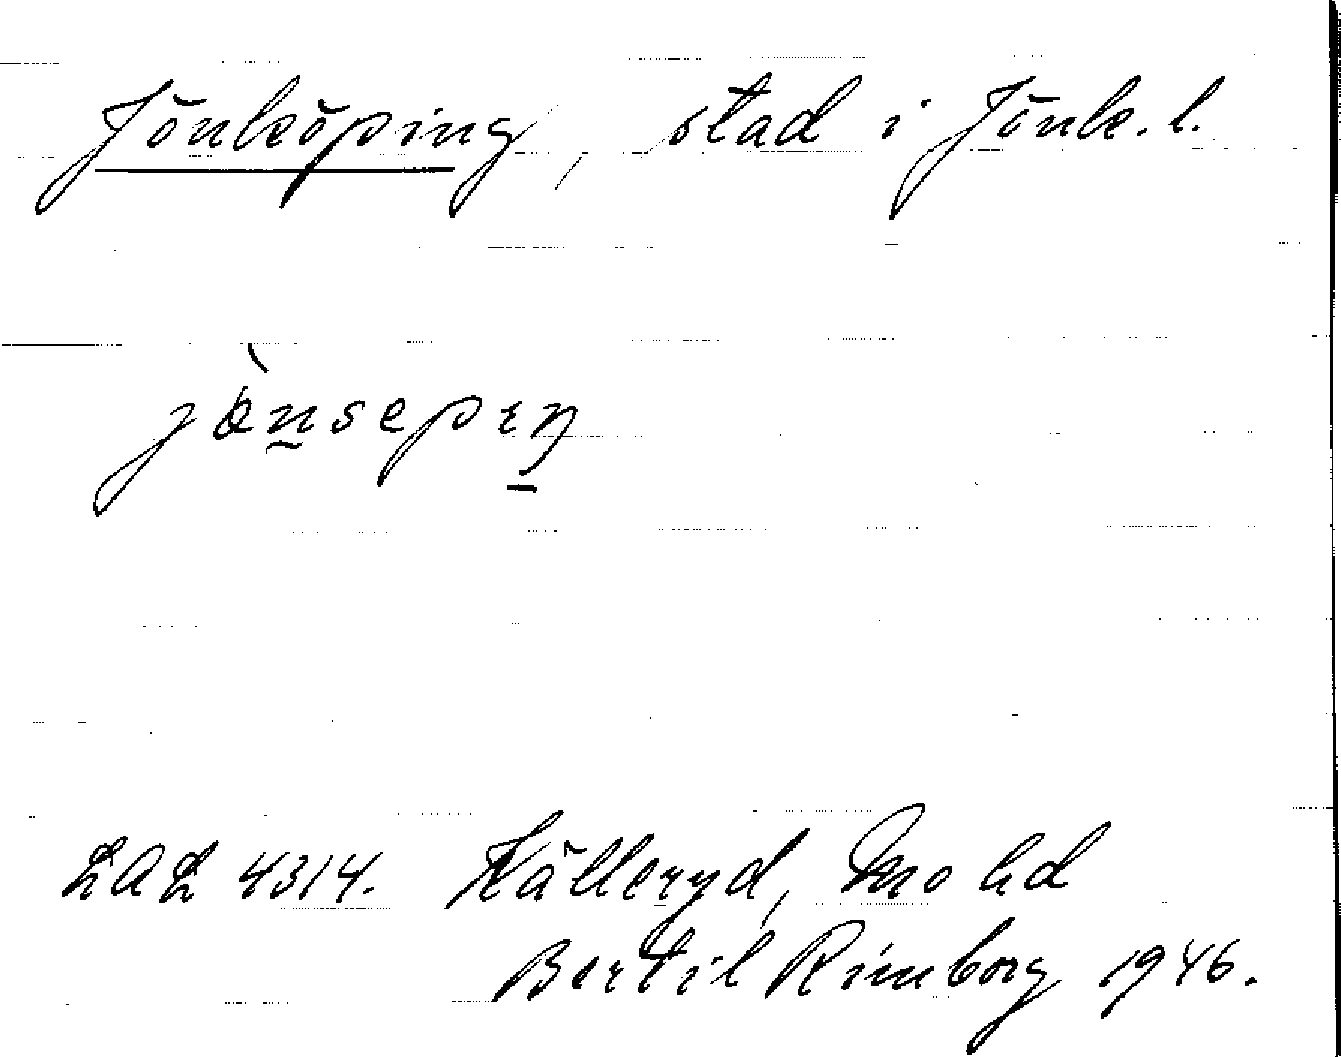 Jönköping, stad i Jönk. l.
jö̀nsepıŋ
LAL 4314. Källeryd, Mo hd
Bertil Rimborg 1946.